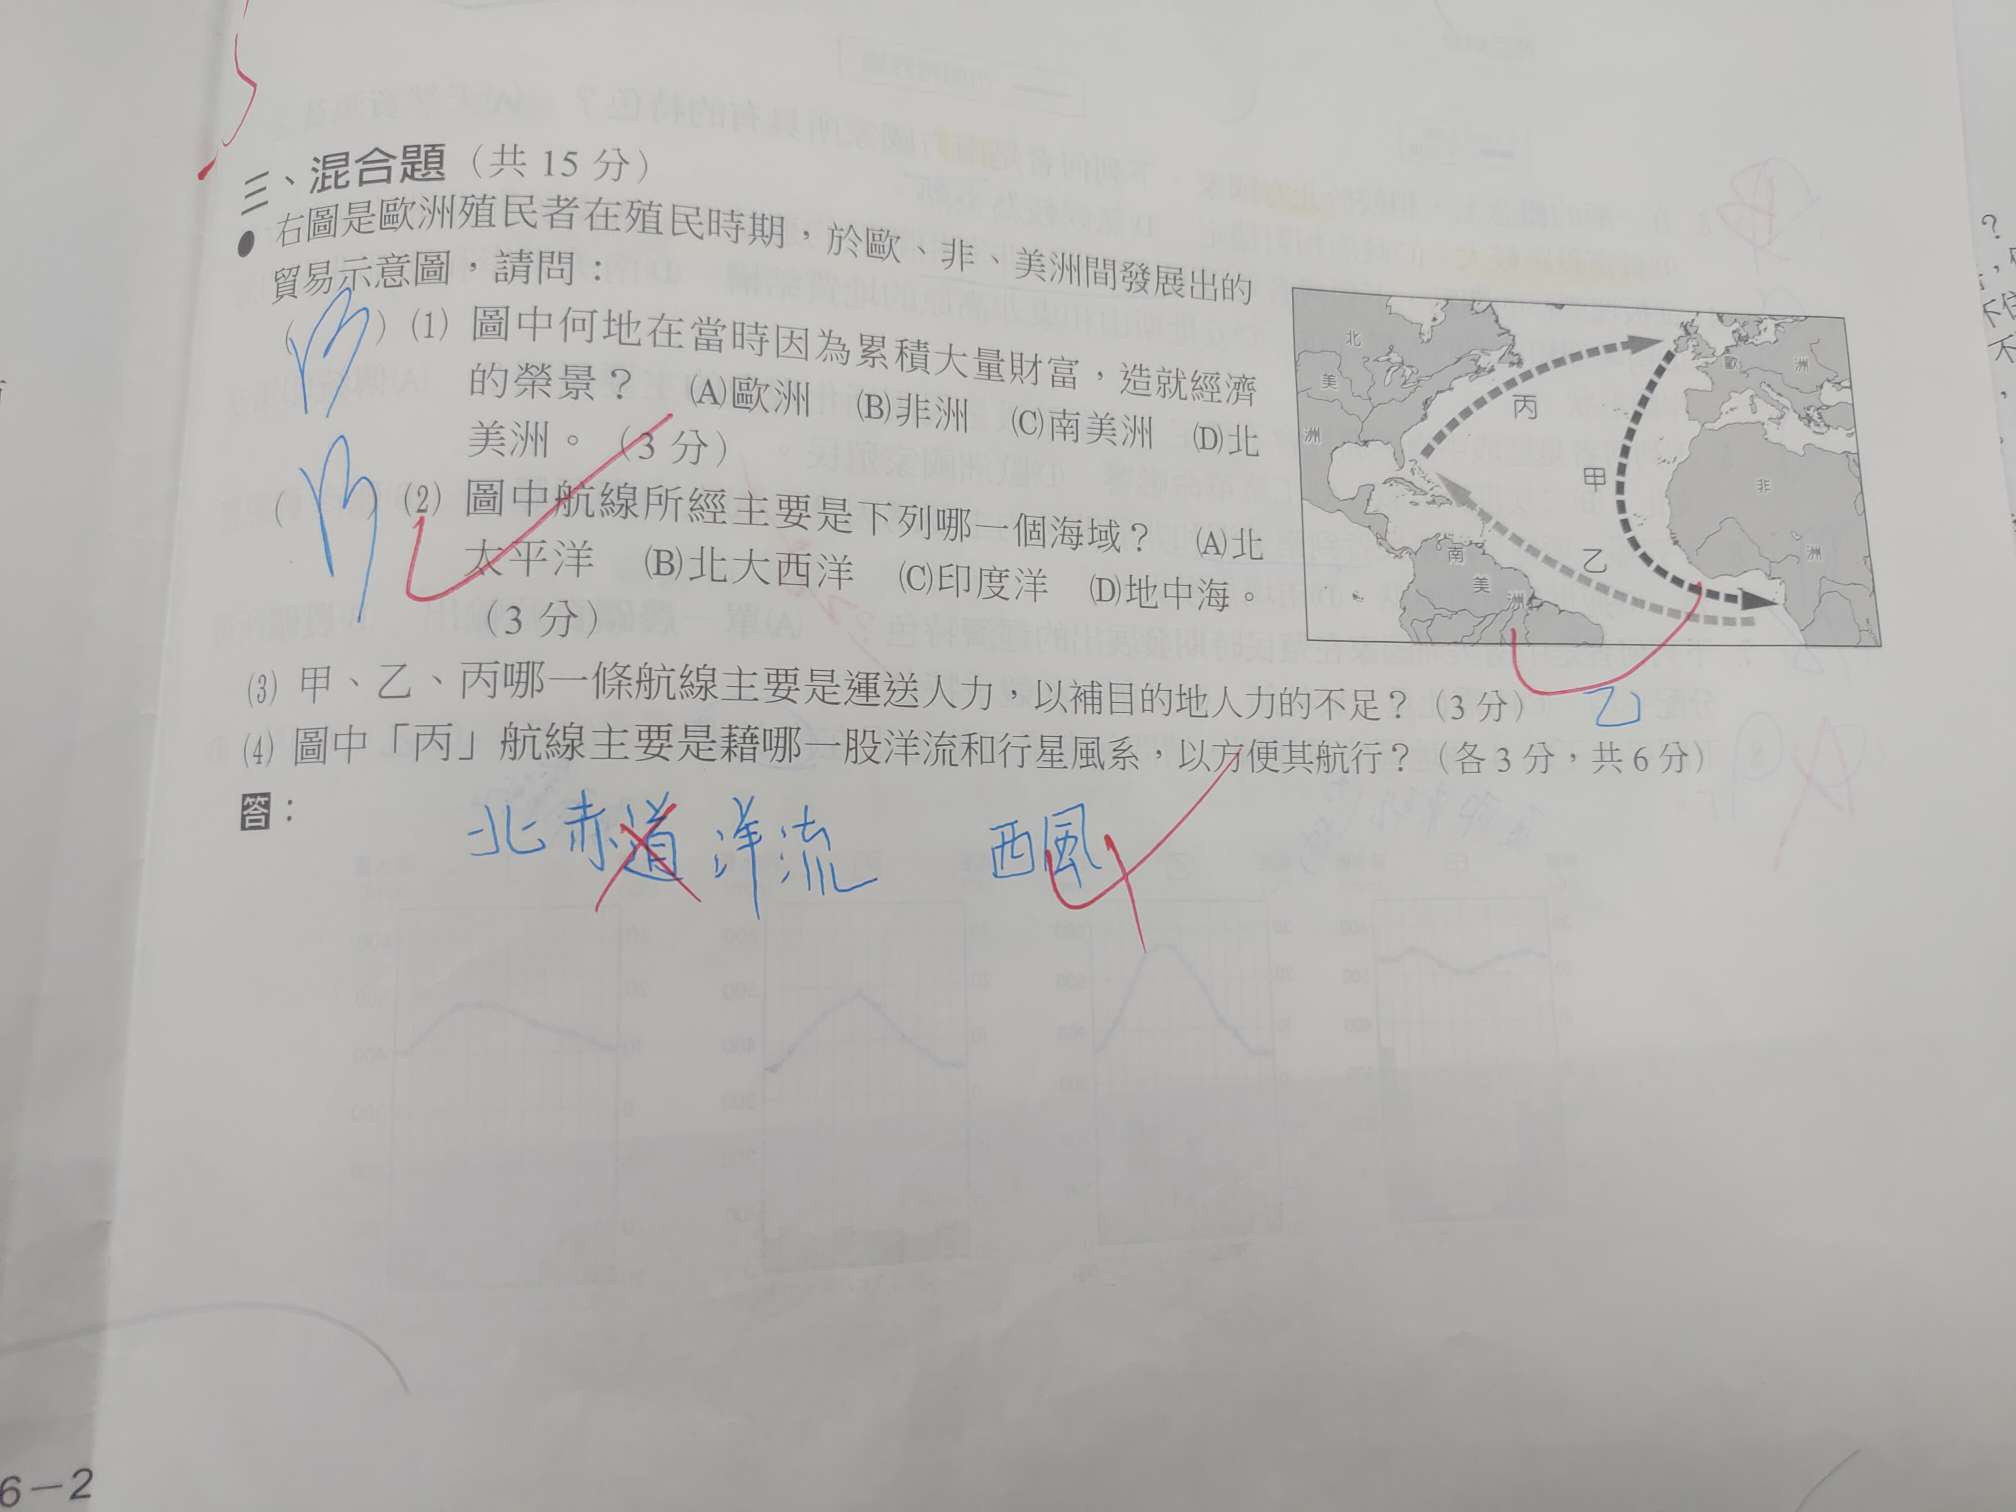 三、混合題（共 15 分）
● 右圖是歐洲殖民者在殖民時期，於歐、非、美洲間發展出的
貿易示意圖，請問：
(1) 圖中何地在當時因為累積大量財富，造就經濟
的榮景？ (A)歐洲 (B)非洲 (C)南美洲 (D)北
美洲。（3 分）
(2) 圖中航線所經主要是下列哪一個海域？ (A)北
太平洋 (B)北大西洋 (C)印度洋 (D)地中海。
（3 分）
北
美
洲
丙
歐 洲
甲
非
洲
乙
南
美
洲
(3) 甲、乙、丙哪一條航線主要是運送人力，以補目的地人力的不足？（3 分） 乙
(4) 圖中「丙」航線主要是藉哪一股洋流和行星風系，以方便其航行？（各 3 分，共 6 分）
答：
北赤道洋流 西風
6－2